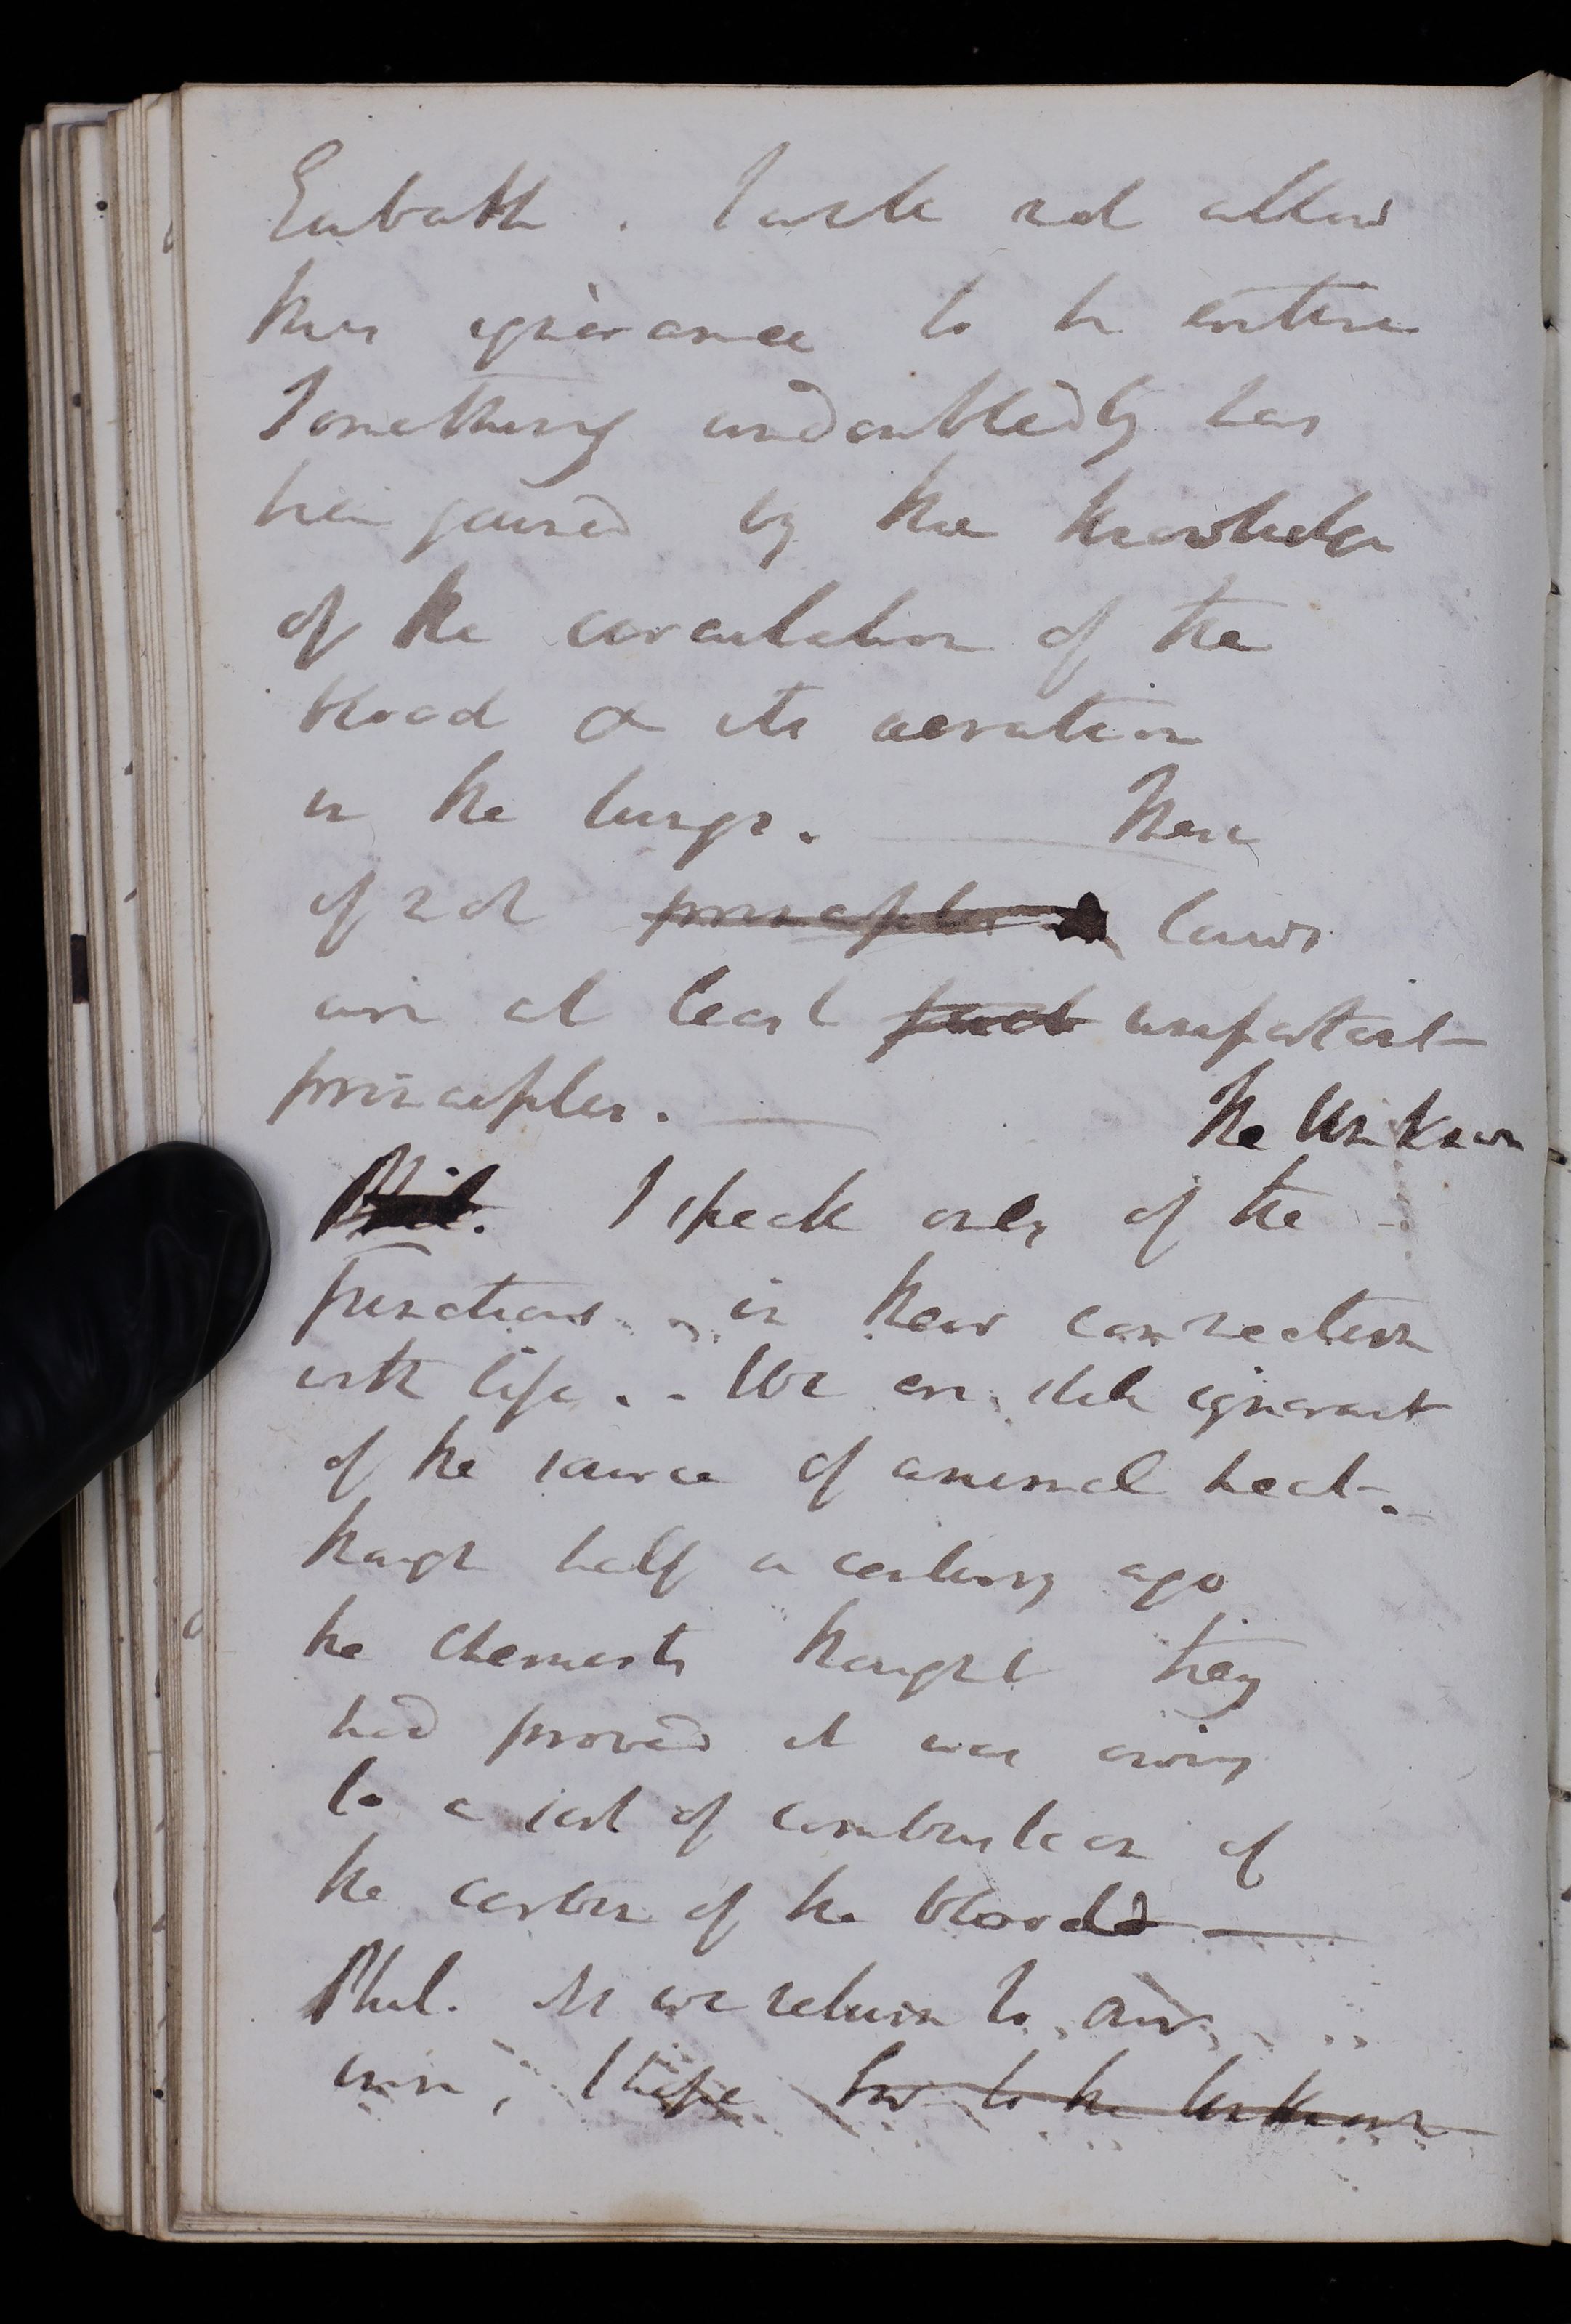 Eubath. I will not allow
this ignorance to be entire
Something undoubtedly has
been gained by the knowledge
of the circulation of the
blood & its aeration
in the lungs. — These
if not principles laws
are at least facts important
principles. —
The Unknown
Phil. I speak only of the
functions in their connection
with life. - We are still ignorant
of the source of animal heat.
though half a century ago
the chemists thought they
had proved it was owing
to a sort of combustion of
the carbon of the blood —
Phil. As we return to air
I hope to the Unknown